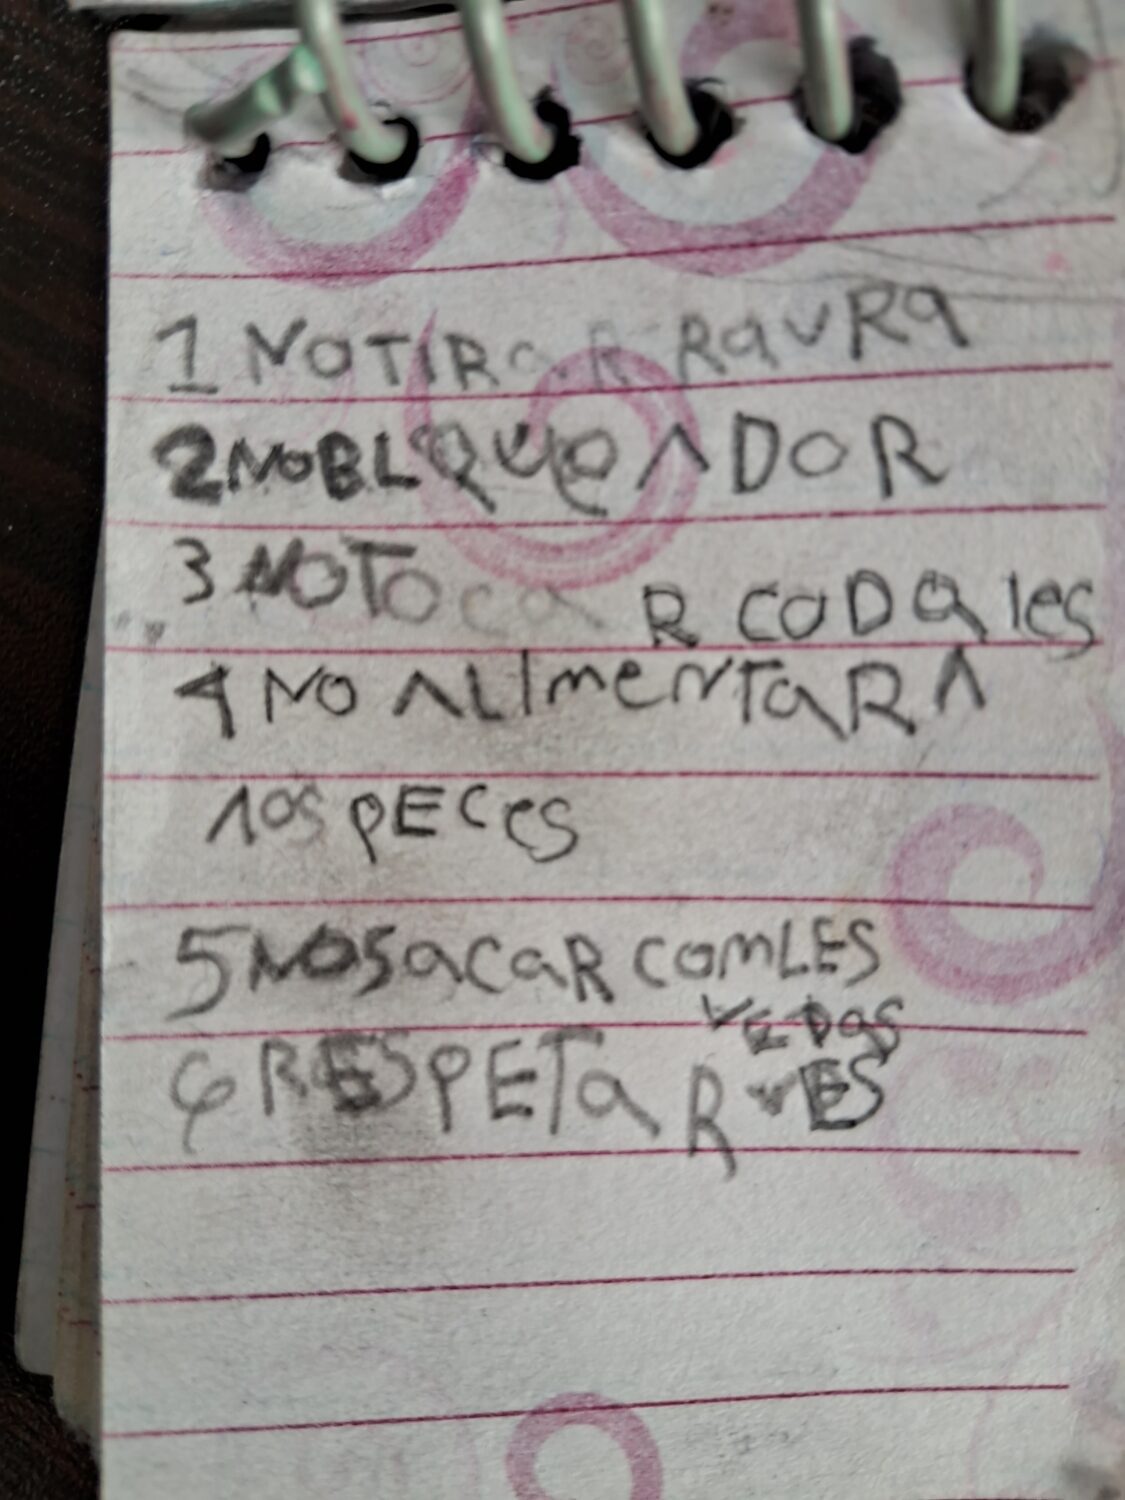 1 NO TIRAR RAVRA
2 NO BLQUEADOR
3 NO TOCAR CODALES
4 NO ALIMENTAR A
lOS PECES
5 NO SACAR COMLES
VEDAS
6 RESPETAR VES